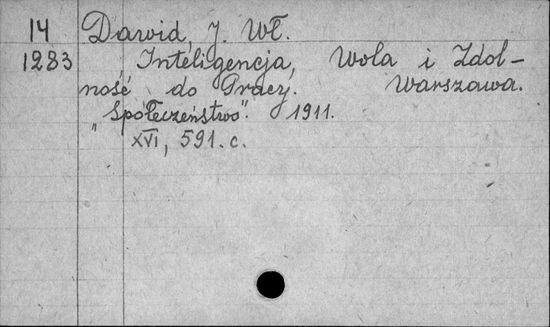 14 Dawid, J. Wł.
1283 Inteligencja, Wola i Zdol-
ność do Pracy. Warszawa.
„Społeczeństwo". 1911.
XVI, 591. c.